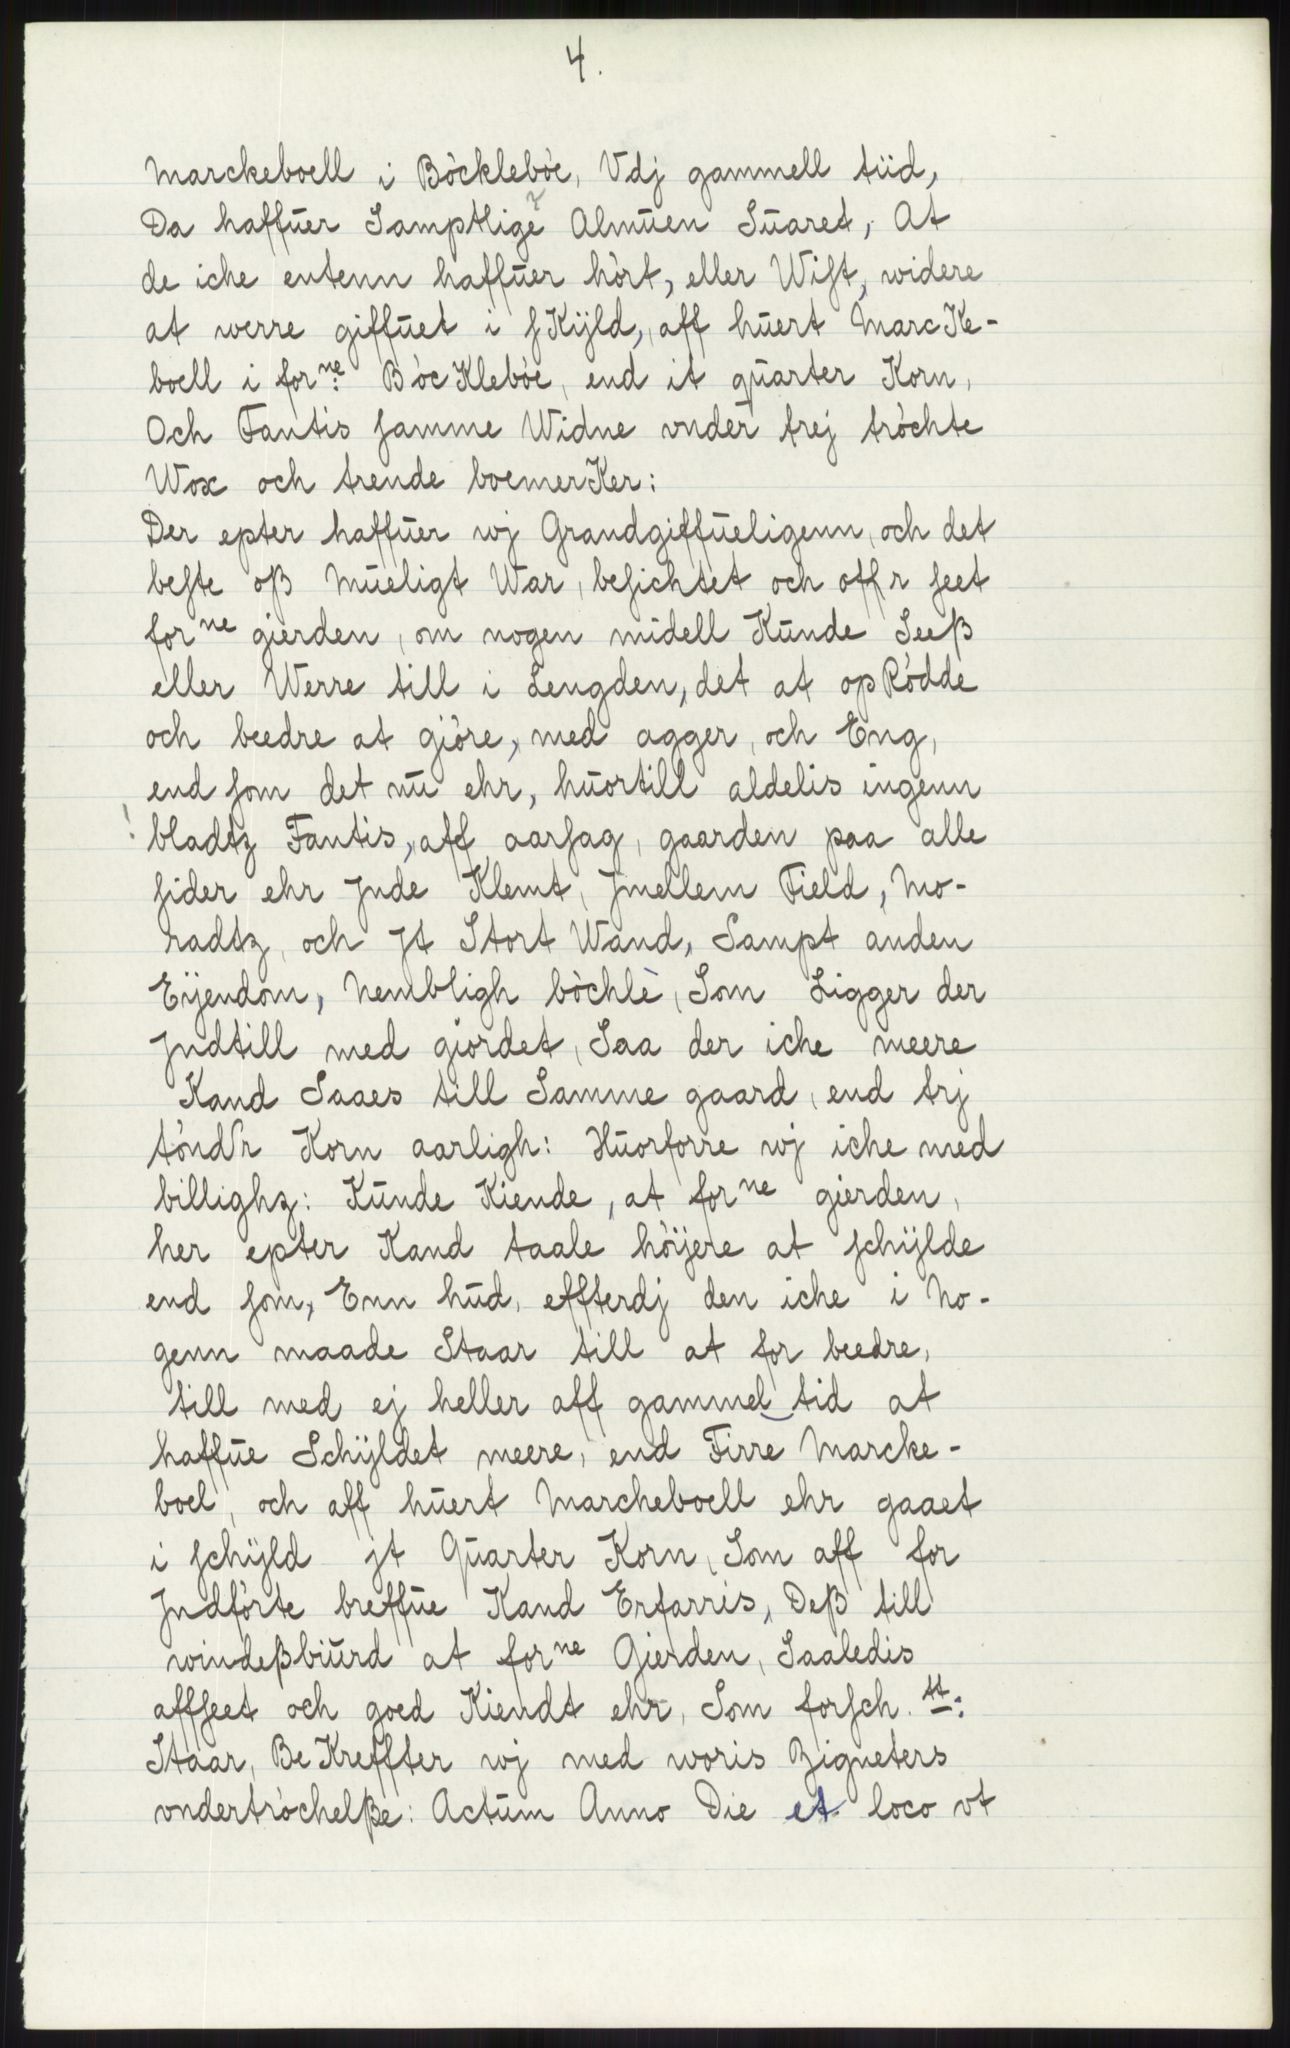 4.
Marckeboell i Böckleböe, Vdj gammell tiid,
Da haffuer Samptlige Almuen Suaret, At
de iche entenn haffuer hört, eller Wist, widere
at werre giffuet i skijld, aff huert MarcKe-
boell i forne: BöcKleböe, end it quarter Korn,
Och Fantis samme Widne vnder trej tröchte
Wox och trende boemerKer:
Der epter haffuer wj Grandgiffueligenn, och det
beste oß Mueligt War, besichtet och offr seet
forne gierden, om nogen midell Kunde Seeß
eller Werre till i Lengden, det at opRödde
och beedre at giöre, med agger, och Eng,
end som det nu ehr, huortill aldelis ingenn
! bladtz Fantis, aff aarsag, gaarden paa alle
sider ehr Jnde Klemt, Jmellem Field, Mo-
radtz, och Jt Stort Wand, Sampt anden
Eijendom, Nembligh böchle, Som Ligger der
Jndtill med giordet, Saa der iche meere
Kand Saaes till Samme gaard, end trj
töndr Korn aarligh: Huorforre wj iche med
billighz: Kunde Kiende, at forne gierden,
her epter Kand taale höijere at schijlde
end som, Enn hud, effterdj den iche i No-
genn maade Staar till at for beedre,
till med ej heller aff gammel tid at
haffue Schijldet meere, end Firre Marcke-
boel, och aff huert Marcheboell ehr gaaet
i schijld jt Quarter Korn, Som aff for
Jndförte breffue Kand Erfarris, Deß till
windeßbiurd at forne Gierden, Saaledis
affseet och goed Kiendt ehr, Som forsch. tt:
Staar, BeKreffter wj med woris Zigneters
vndertröchelße: Actum Anno Die et loco vt